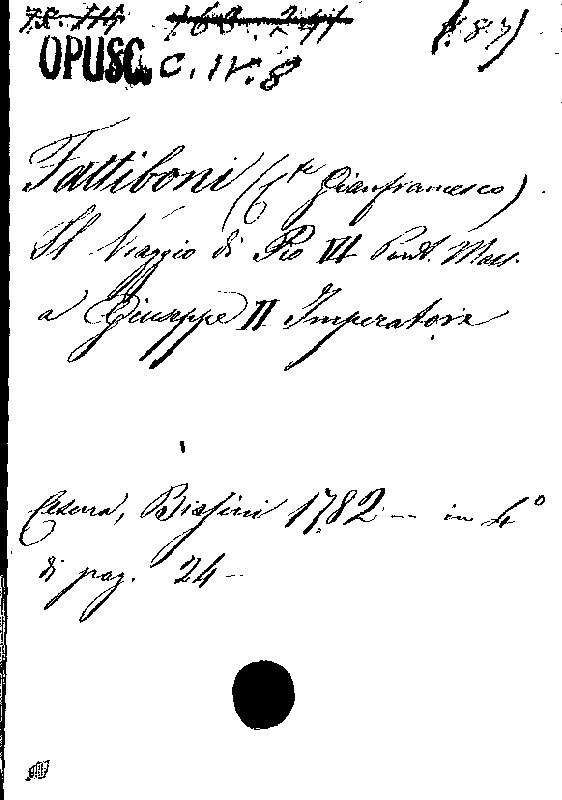 (. 8 7)
OPUSC. C. IV. 8
Fattiboni (Cte Gianfrancesco).
Il Viaggio di Pio VI Pont. Mass.
a Giuseppe II Imperatore
Cesena, Biasini 1782 — in 4°
di pag. 24 —